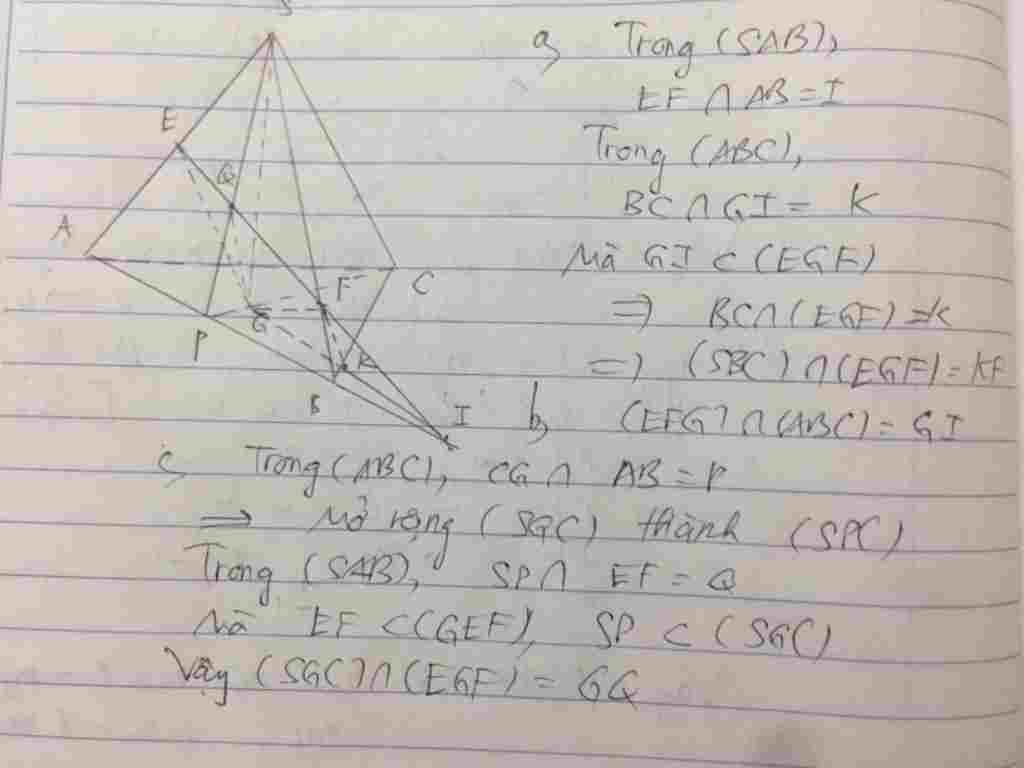 S
E
Q
A
F
C
G
P
K
B
I
a, Trong (SAB),
EF ∩ AB = I
Trong (ABC),
BC ∩ GI = K
Mà GI ⊂ (EGF)
⇒ BC ∩ (EGF) = K
⇒ (SBC) ∩ (EGF) = KF
b, (EFG) ∩ (ABC) = GI
c, Trong (ABC), CG ∩ AB = P
⇒ Mở rộng (SGC) thành (SPC)
Trong (SAB), SP ∩ EF = Q
Mà EF ⊂ (GEF), SP ⊂ (SGC)
Vậy (SGC) ∩ (EGF) = GQ